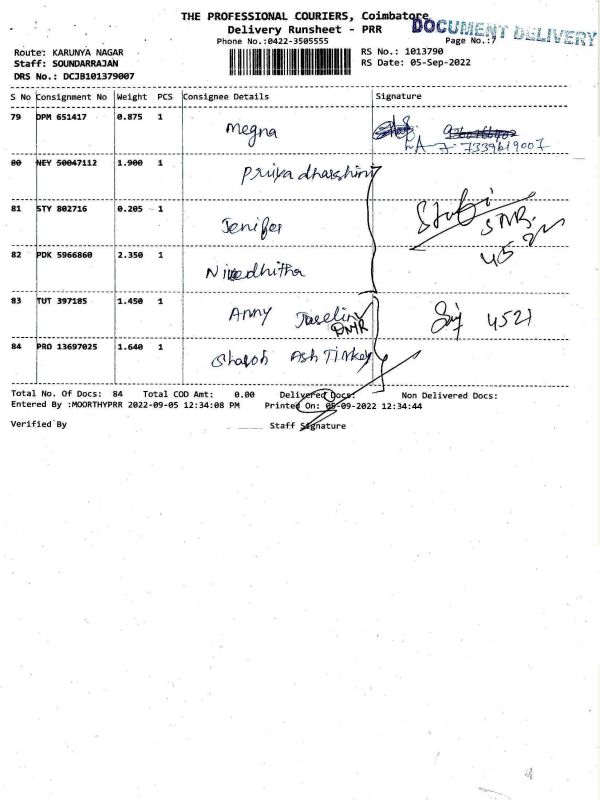 THE PROFESSIONAL COURIERS, Coimbatore
DOCUMENT DELIVERY
Delivery Runsheet - PRR
Phone No.:0422-3505555
Page No.:7
Route: KARUNYA NAGAR
RS No.: 1013790
Staff: SOUNDARRAJAN
RS Date: 05-Sep-2022
DRS No.: DCJB101379007
S No Consignment No Weight PCS Consignee Details Signature
79 DPM 651417 0.875 1 Megna
7339619007
80 NEY 50047112 1.900 1 Priya dharshini
81 STY 802716 0.205 1 Jenifer
82 PDK 5966860 2.350 1 Nivedhitha
83 TUT 397185 1.450 1 Anny Joselin 4521
DMR
84 PRO 13697025 1.640 1 Sharon Ash Tirkey
Total No. Of Docs: 84 Total COD Amt: 0.00 Delivered Docs: Non Delivered Docs:
Entered By :MOORTHYPRR 2022-09-05 12:34:08 PM Printed On: 05-09-2022 12:34:44
Verified By Staff Signature